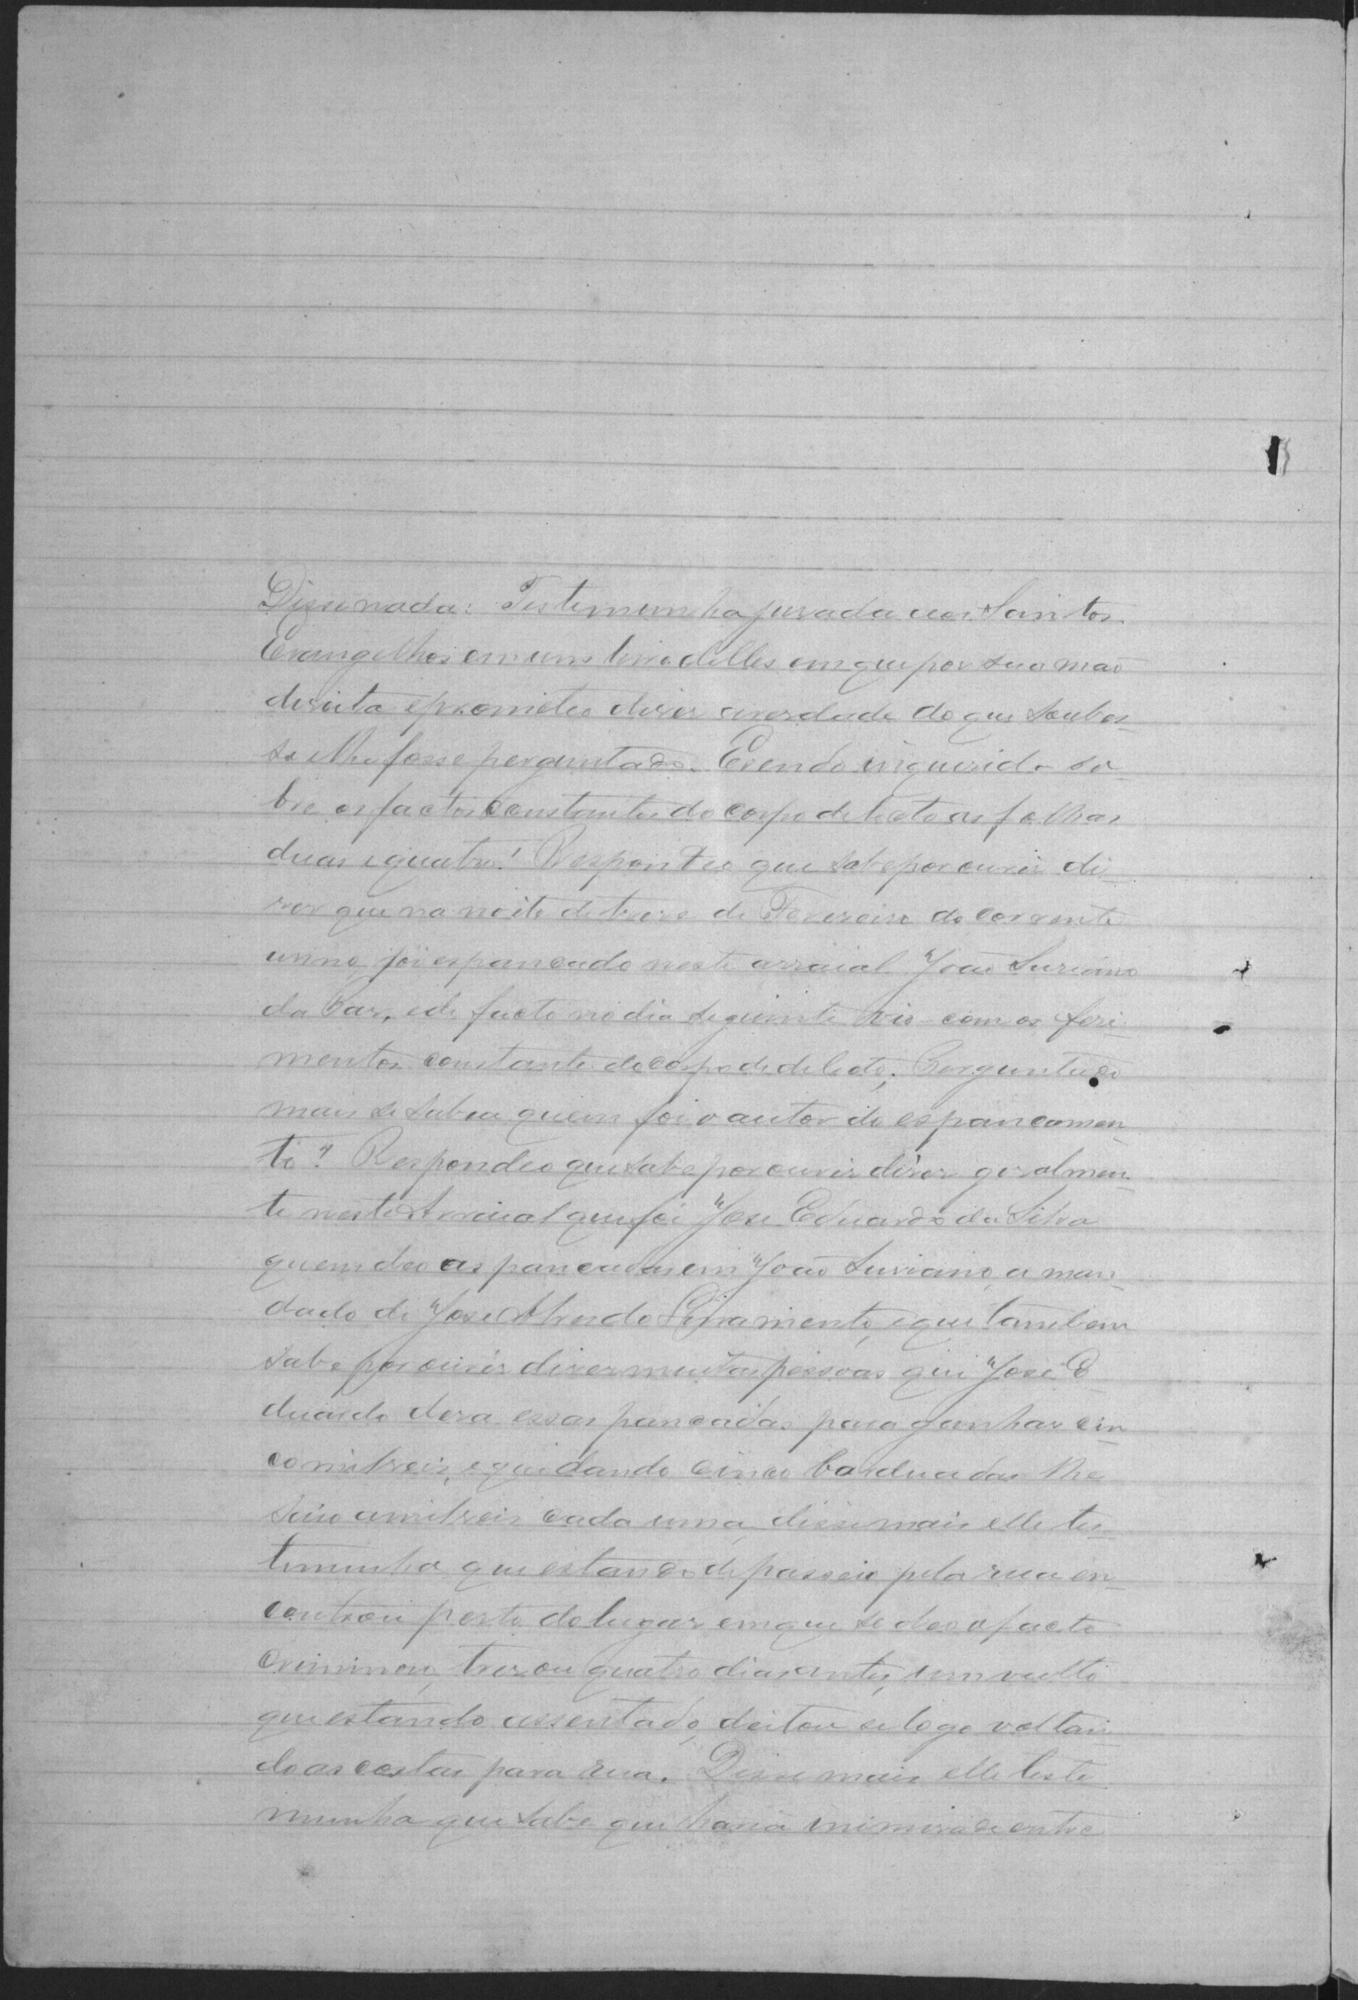 Disse nada: Testemunha jurada aos Santos
Evangelhos em um livro delles em que por sua mão
direita e prometeo diser averdade do que soubes-
se e lhe fosse perguntado. E sendo inquirido so-
bre os factos constantes do corpo delicto as folhas
duas e quatro! Respondeo que sabe por ouvir di-
zer que na noite de treze de Fevereiro do corrente
anno foi espancado neste arraial João Suriano
da Paz, e de facto no dia seguinte vio com os feri-
mentos constante do corpo de delicto. Perguntado
mais se sabia quem foi o autor do espancamen
to? Respondeo que sabe por ouvir diser geralmen-
te neste Arraial que foi José Eduardo da Silva
quem deo as pancadas em João Suriano a man-
dado de José Alvesdo Livramento, e que tambem
sabe por ouvir diser muitas pessoas que José E-
duardo dera essas pancadas para ganhar cin-
co mil reis, e que dando cinco bordoadas lhe
saio a mil reis cada uma, disse mais elle tes-
temunha que estando de passeio pela rua en-
controu perto do lugar em que se deo o facto
criminoso, tres ou quatro dias antes, um vulto
que estando assentado, deitou se logo voltan-
do as costas para rua. Disse mais elle teste
munha que sabe que havia inimisade entre